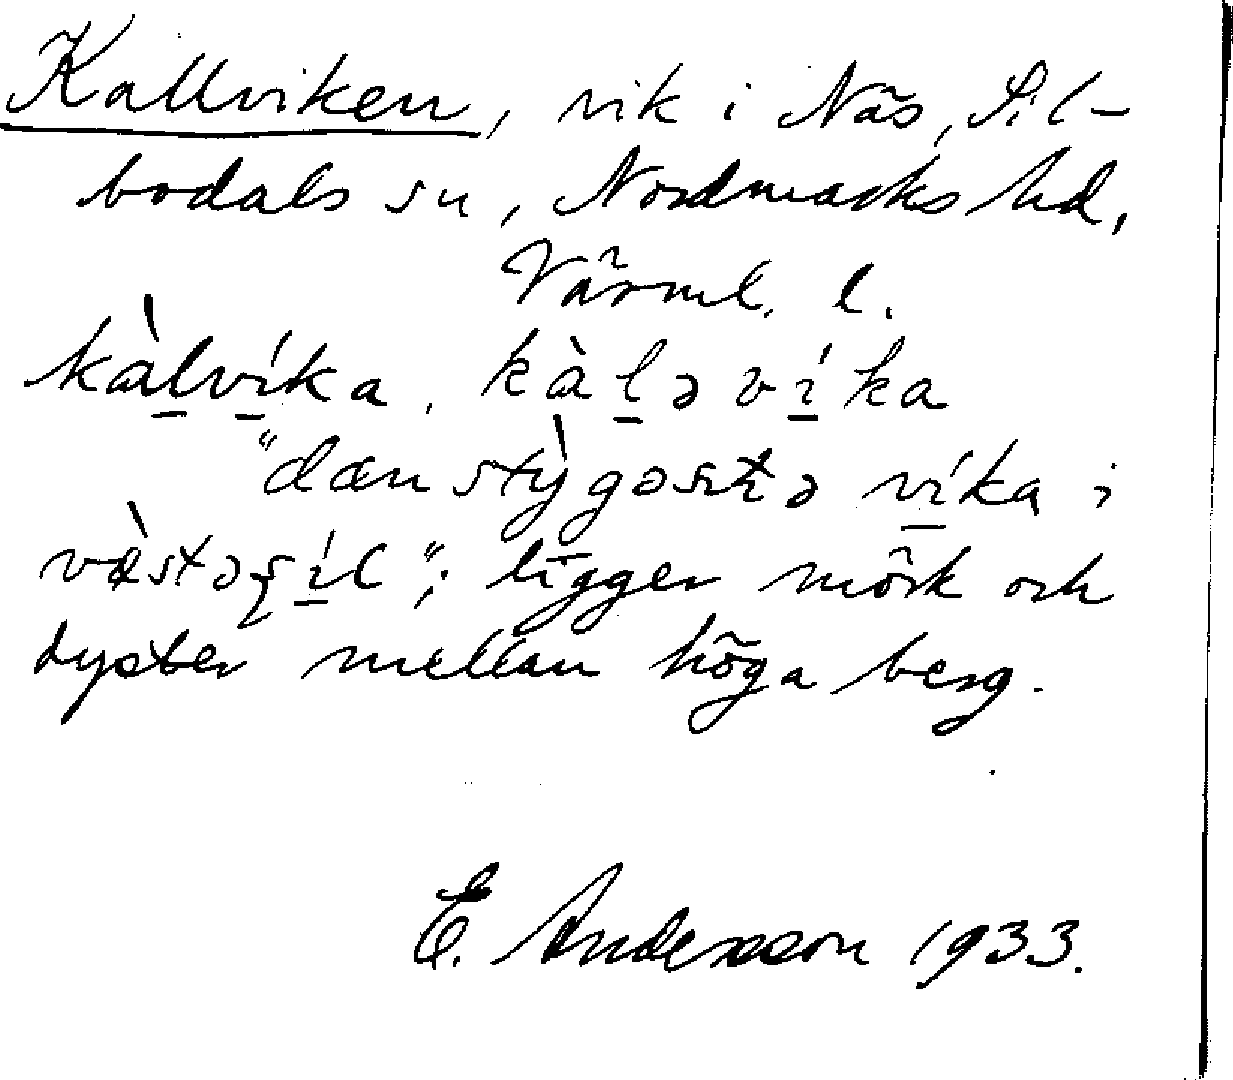 Kallviken, vik i Näs, Sil-
bodals sn, Nordmarks hd,
Värml. l.
kàlvíka, kàləvíka
"dæn stỳgəstə víka i
væ̀stəʂíl"; ligger mörk och
dyster mellan höga berg.
E. Andersson 1933.